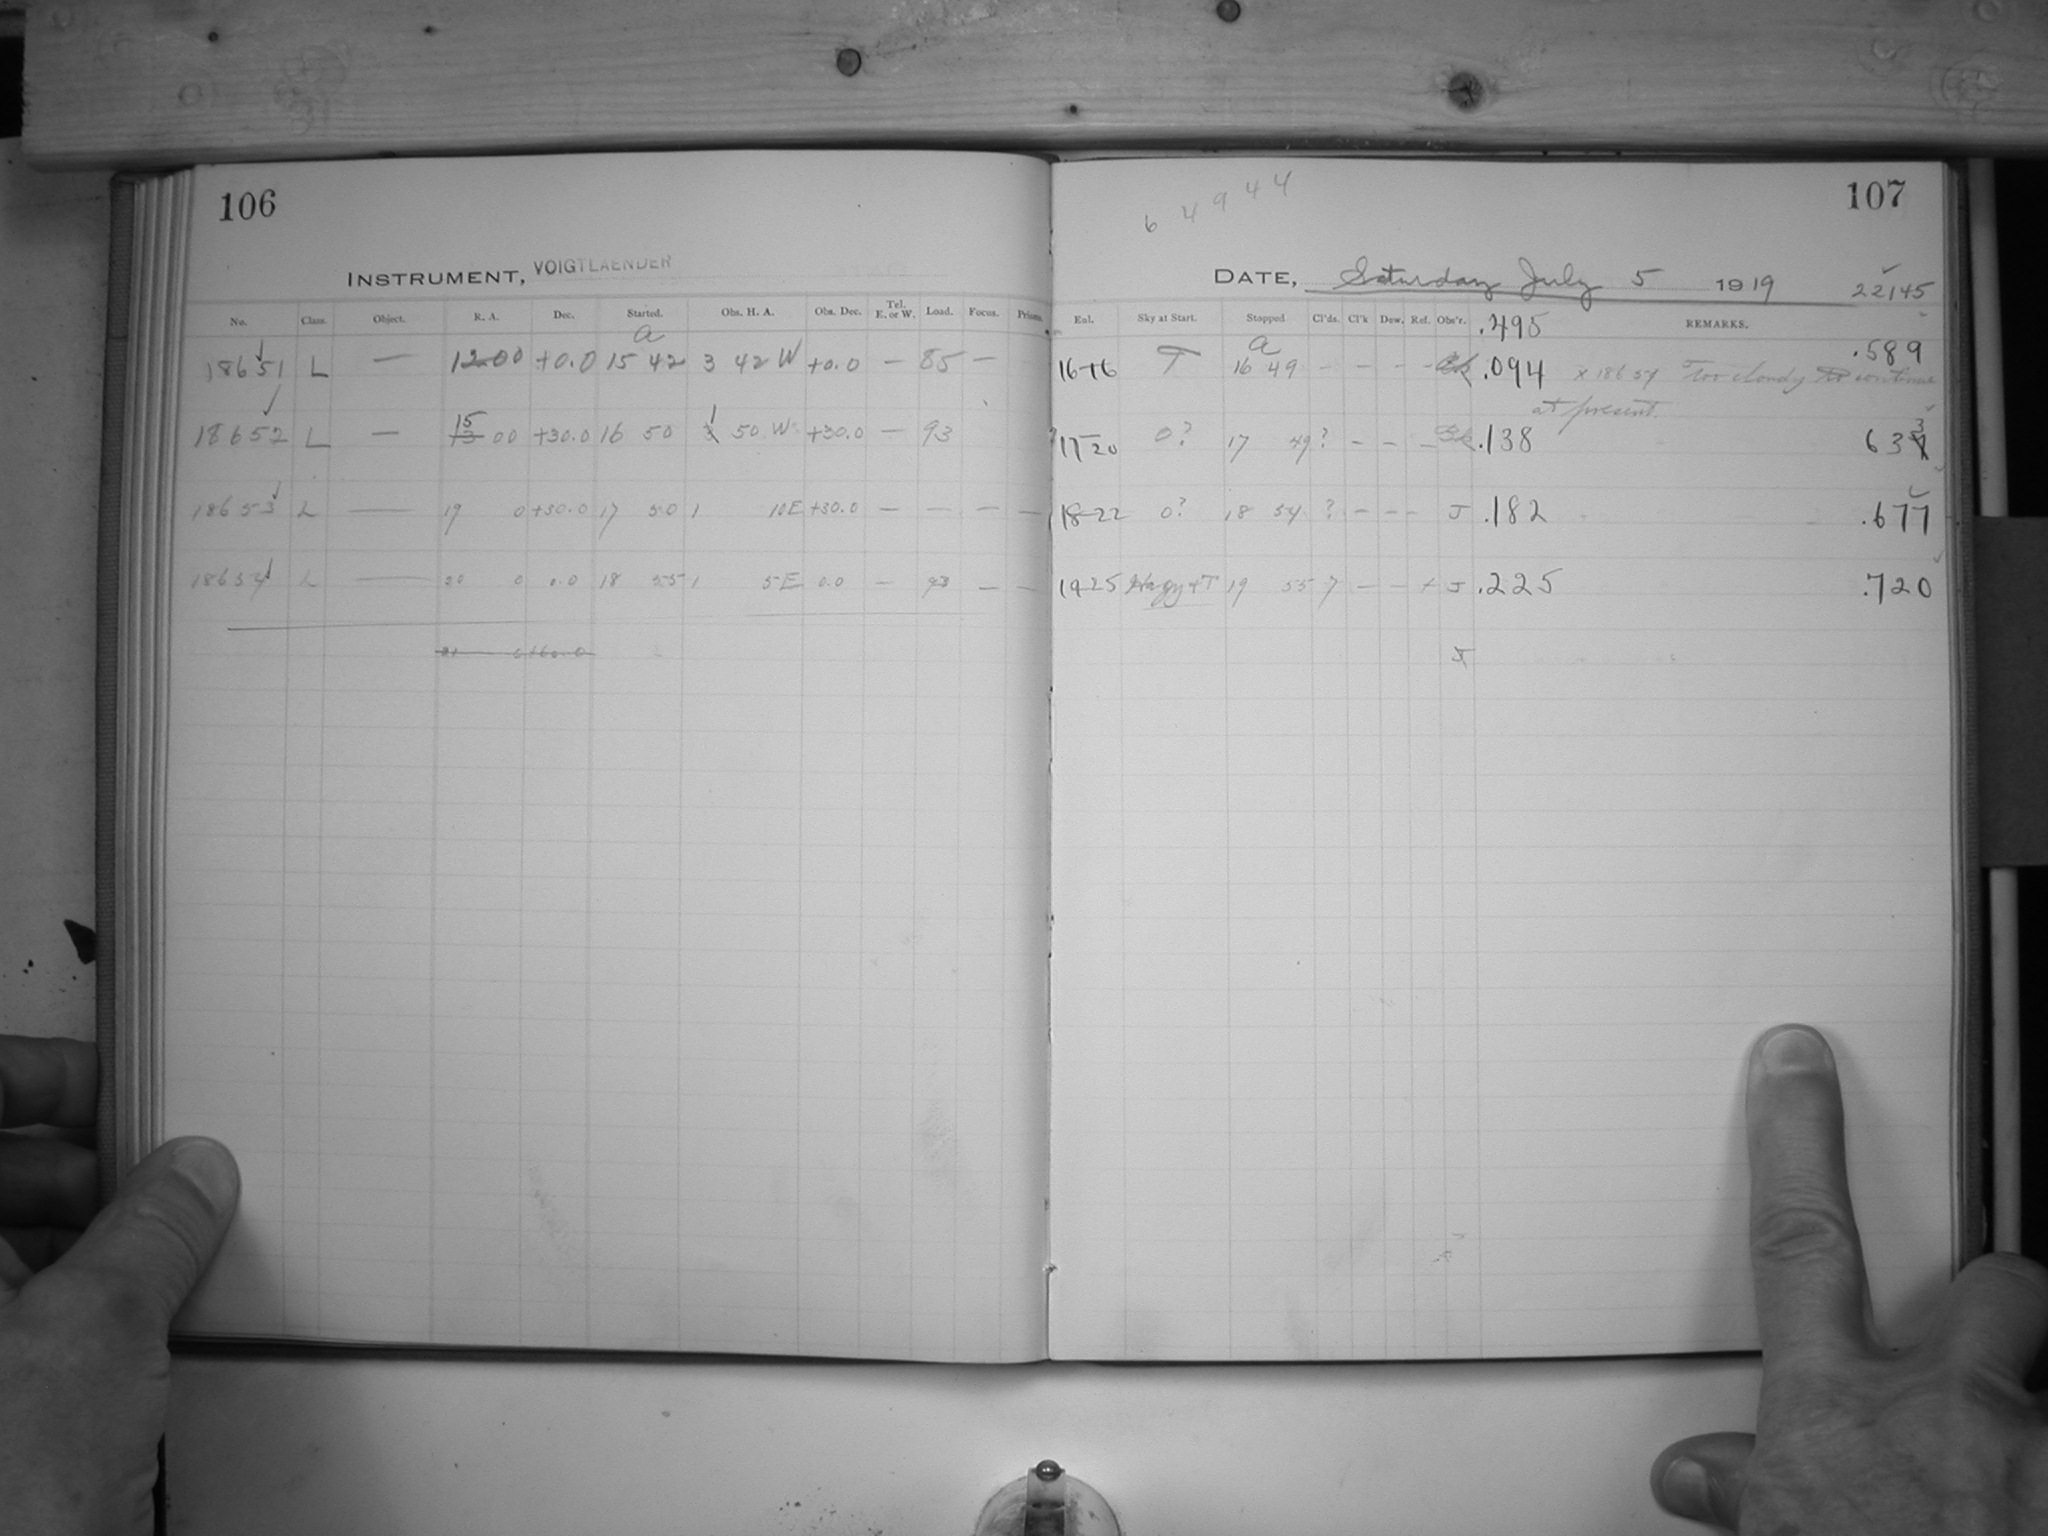 106
INSTRUMENT, VOIGTLAENDER
No. Class. Object. R. A. Dec. Started. Obs. H. A. Obs. Dec. Tel. E. or W. Load. Focus. Prisms.
a
18651 L — 12 00 +0.0 15 42 3 42 W +0.0 — 85 —
15
18652 L — 13 00 +30.0 16 50 1 50 W +30.0 — 93
18653 L — 19 0 +30.0 17 50 1 10E +30.0 — — — —
18654 L — 20 0 0.0 18 55 1 5E 0.0 — 93 — —
107
6 4 9 4 4
DATE, Saturday July 5 1919 22145
Sky at Start. Stopped Cl'ds. Cl'k Dew. Ref. Obs'r. .495 REMARKS.
a .589
16-16 T 16 49 — — — - .094 x 18654 Too cloudy to continue
at present.
17-20 0? 17 49 ? — — — .138 633
18-22 0? 18 54 ? — — — J .182 .677
19-25 Hazy+T 19 55 7 — — + J .225 .720
J